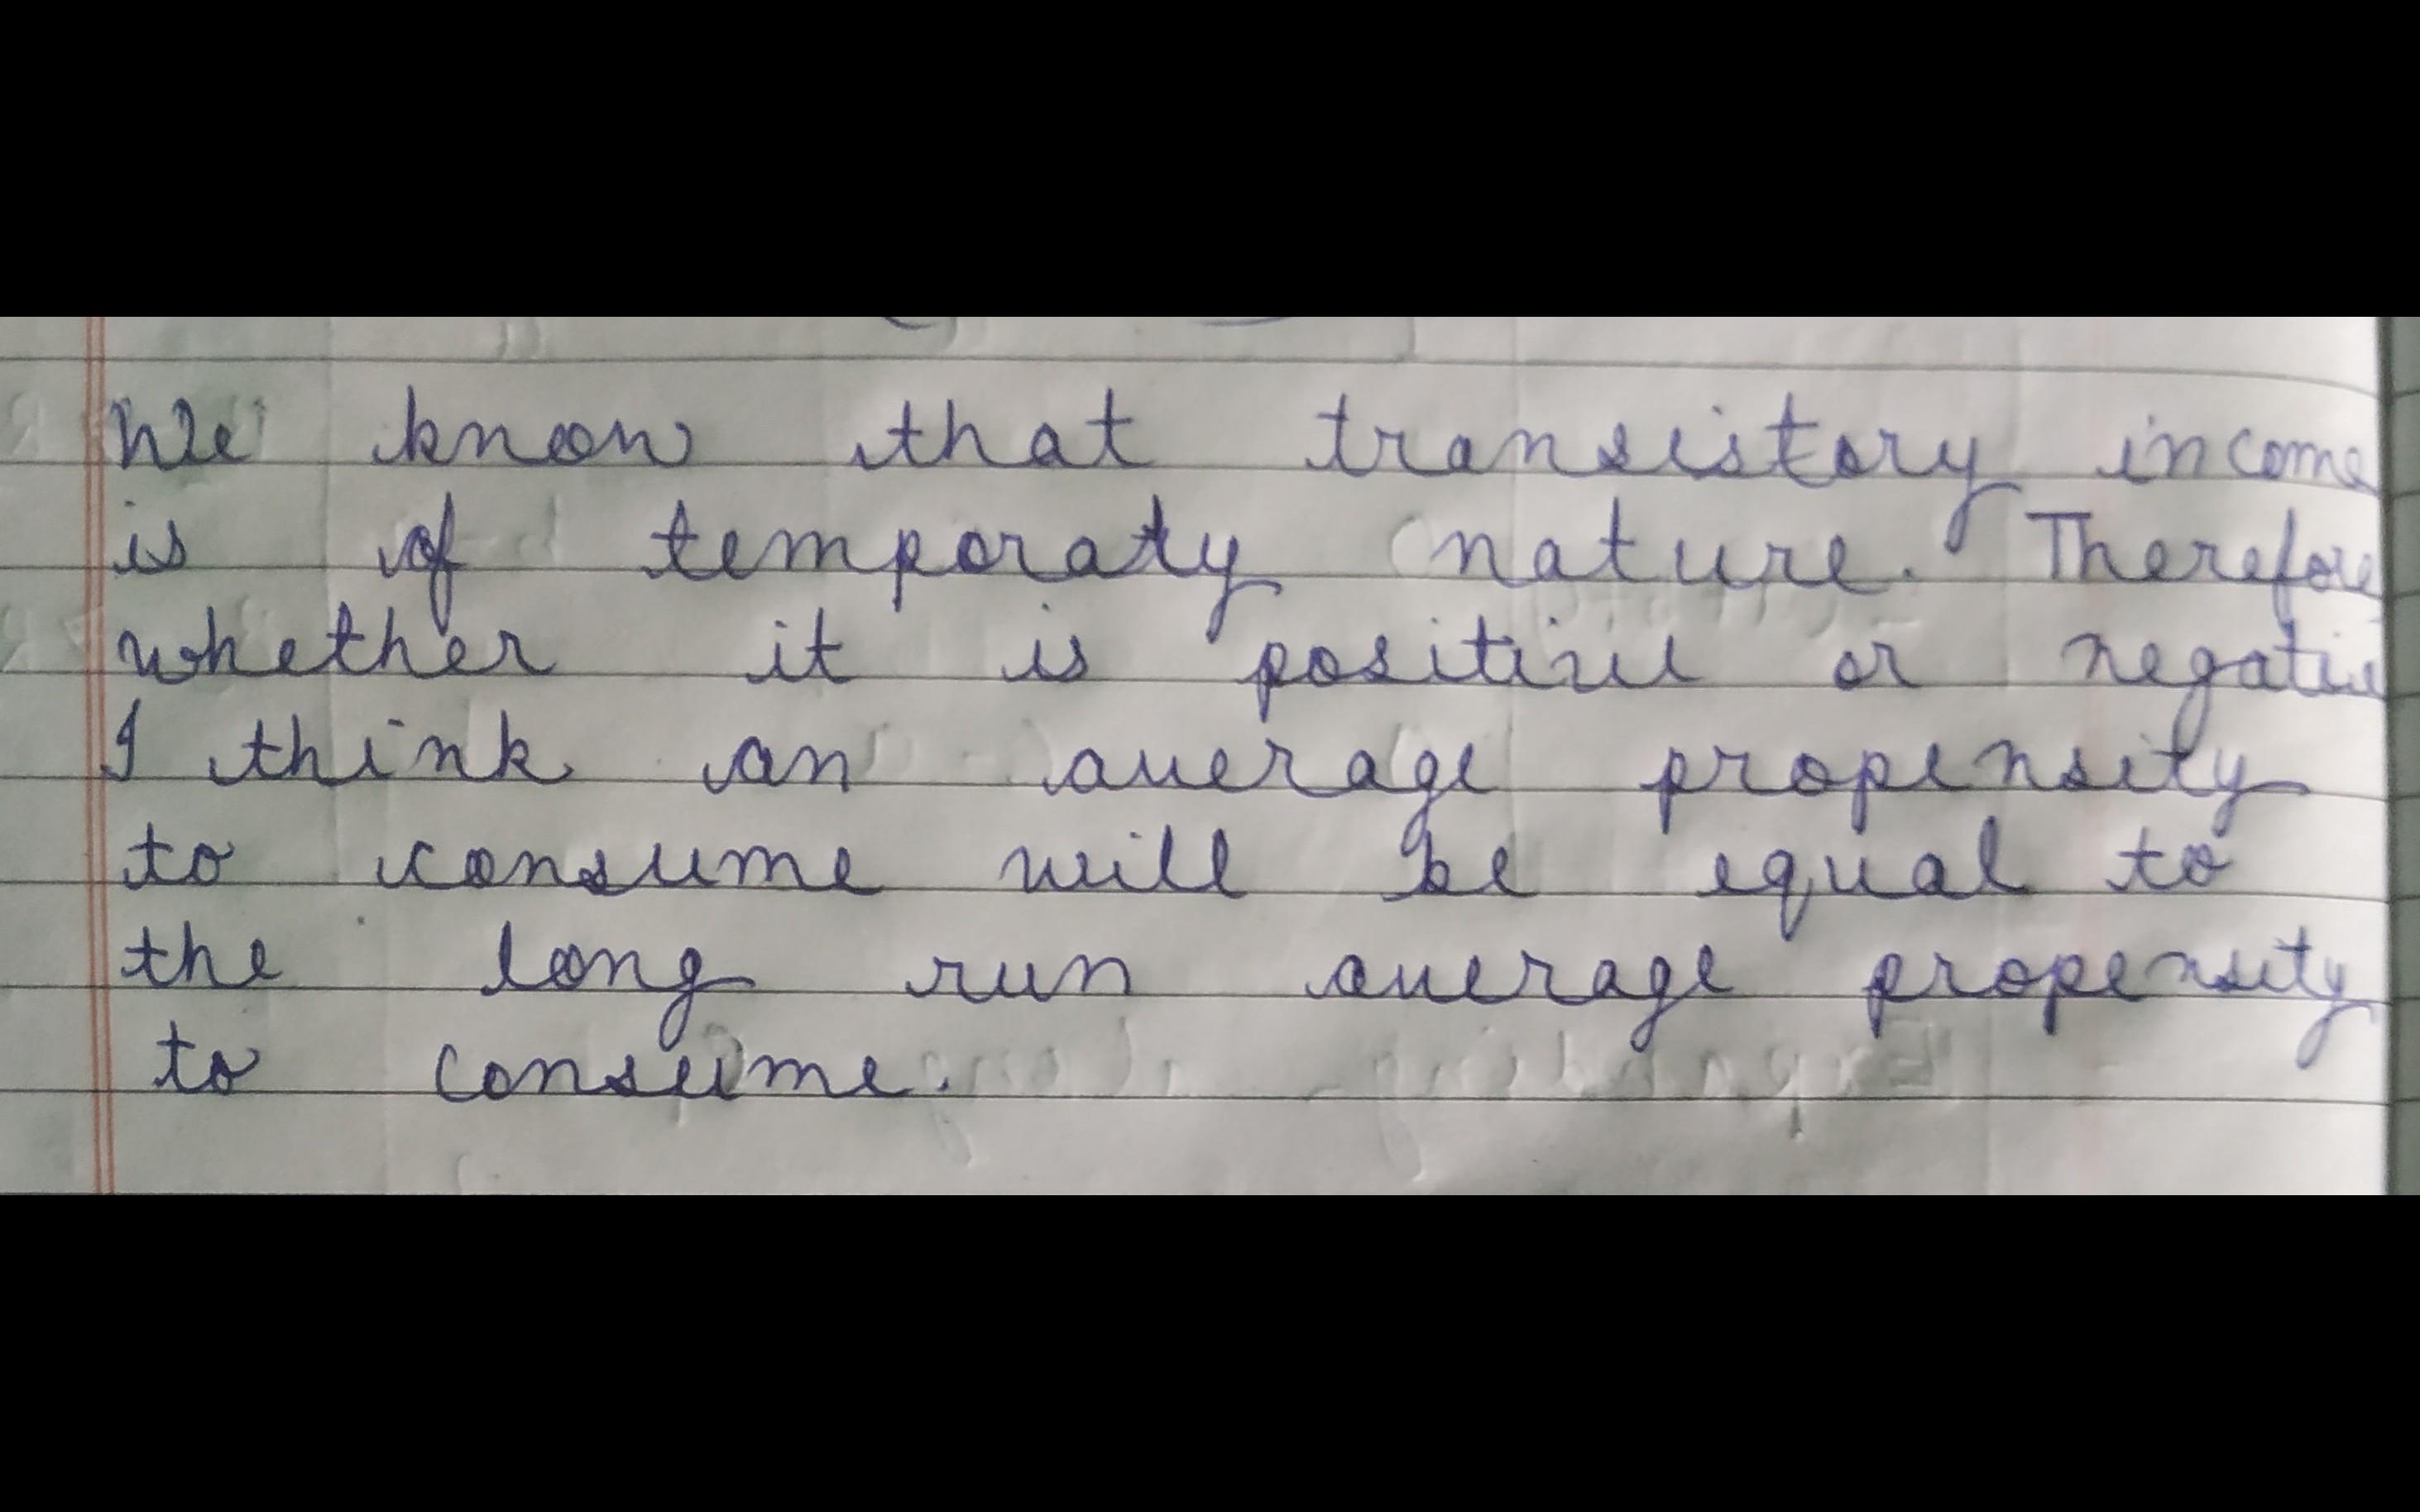 We know that transistory income
is of temporary nature. Therefore
whether it is positive or negative
I think an average propensity
to consume will be equal to
the long run average propensity
to consume.